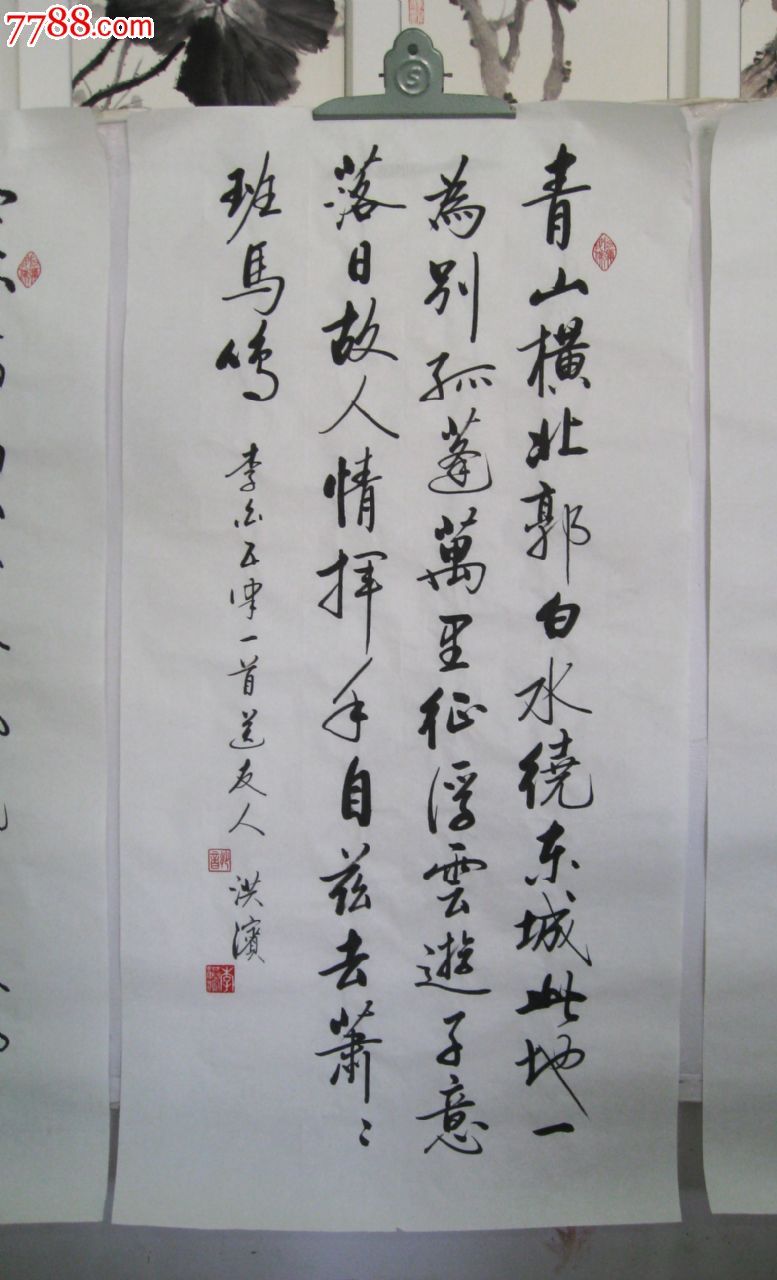 7788.com
青山橫北郭白水繞东城此地一
為別孤蓬萬里征浮雲遊子意
落日故人情揮手自茲去蕭〻
班馬鸣 李白五律一首送友人 洪濱